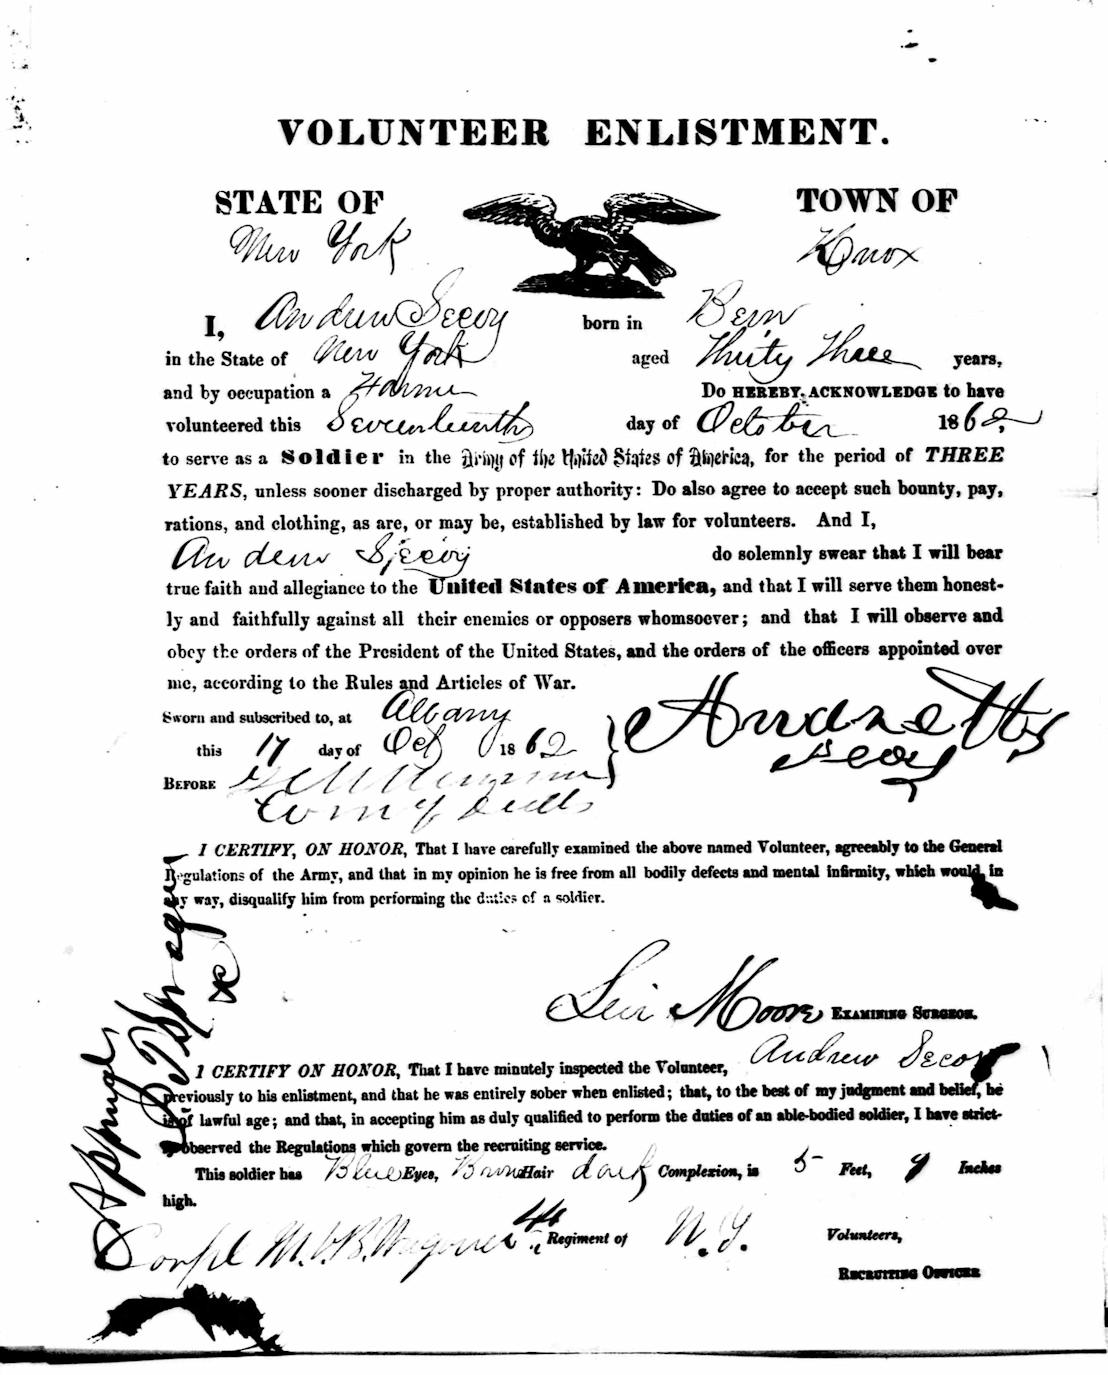 VOLUNTEER ENLISTMENT.
STATE OF TOWN OF
New York Knox
I, Andrew Secoy born in Bern
in the State of New York aged Thirty Three years,
and by occupation a Farmer Do HEREBY ACKNOWLEDGE to have
volunteered this Seventeenth day of October 1862,
to serve as a Soldier in the Army of the United States of America, for the period of THREE
YEARS, unless sooner discharged by proper authority: Do also agree to accept such bounty, pay,
rations, and clothing, as are, or may be, established by law for volunteers. And I,
Andrew Secoy do solemnly swear that I will bear
true faith and allegiance to the United States of America, and that I will serve them honest-
ly and faithfully against all their enemies or opposers whomsoever; and that I will observe and
obey the orders of the President of the United States, and the orders of the officers appointed over
me, according to the Rules and Articles of War.
Sworn and subscribed to, at Albany
this 17 day of Oct 1862
Secoy
BEFORE
I CERTIFY, ON HONOR, That I have carefully examined the above named Volunteer, agreeably to the General
Regulations of the Army, and that in my opinion he is free from all bodily defects and mental infirmity, which would, in
any way, disqualify him from performing the duties of a soldier.
Moore EXAMINING SURGEON.
I CERTIFY ON HONOR, That I have minutely inspected the Volunteer, Andrew Secoy
previously to his enlistment, and that he was entirely sober when enlisted; that, to the best of my judgment and belief, he
is of lawful age; and that, in accepting him as duly qualified to perform the duties of an able-bodied soldier, I have strict-
ly observed the Regulations which govern the recruiting service.
This soldier has Blue Eyes, Brown Hair dark Complexion, is 5 Feet, 9 Inches
high.
Corpl M.V.B. Wagoner 44 Regiment of N.Y. Volunteers,
RECRUITING OFFICER